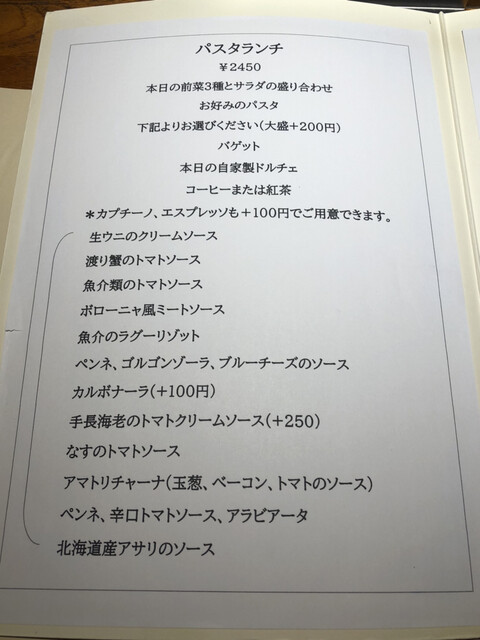 パスタランチ
￥2450
本日の前菜3種とサラダの盛り合わせ
お好みのパスタ
下記よりお選びください(大盛+200円)
バゲット
本日の自家製ドルチェ
コーヒーまたは紅茶
＊カプチーノ、エスプレッソも+100円でご用意できます。
生ウニのクリームソース
渡り蟹のトマトソース
魚介類のトマトソース
ボローニャ風ミートソース
魚介のラグーリゾット
ペンネ、ゴルゴンゾーラ、ブルーチーズのソース
カルボナーラ(+100円)
手長海老のトマトクリームソース(+250)
なすのトマトソース
アマトリチャーナ(玉葱、ベーコン、トマトのソース)
ペンネ、辛口トマトソース、アラビアータ
北海道産アサリのソース